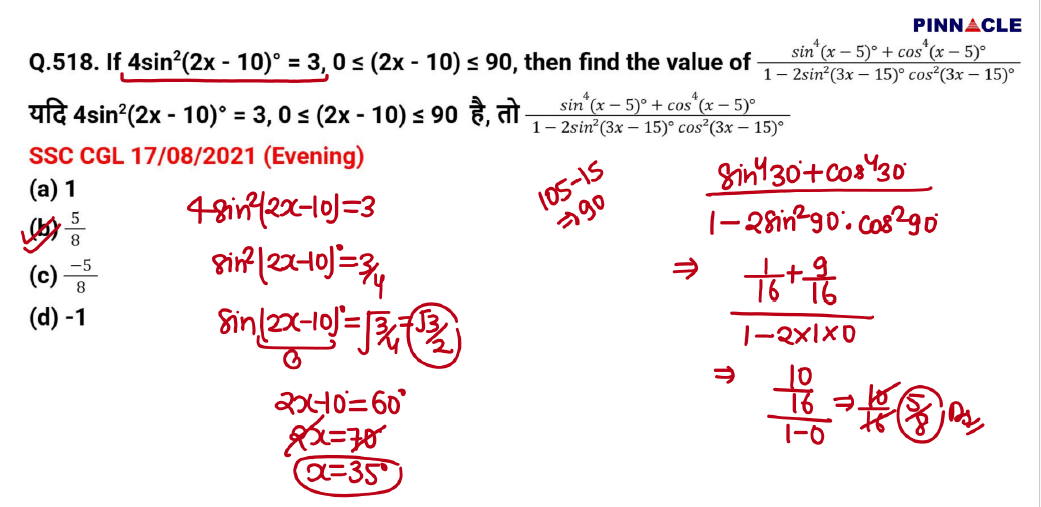 PINNACLE
Q.518. If 4sin²(2x - 10)° = 3, 0 ≤ (2x - 10) ≤ 90, then find the value of (sin⁴(x − 5)° + cos⁴(x − 5)°)/(1 − 2sin²(3x − 15)° cos²(3x − 15)°)
यदि 4sin²(2x - 10)° = 3, 0 ≤ (2x - 10) ≤ 90 है, तो (sin⁴(x − 5)° + cos⁴(x − 5)°)/(1 − 2sin²(3x − 15)° cos²(3x − 15)°)
SSC CGL 17/08/2021 (Evening)
(a) 1
(b) 5/8
(c) −5/8
(d) -1
4sin²(2x-10)=3
sin²(2x-10)°=3/4
sin(2x-10)°=√3/4=√3/2
θ
2x-10°=60°
2x=70°
x=35°
105-15
⇒90
(sin⁴30°+cos⁴30°)/(1-2sin²90°.cos²90°)
⇒ (1/16+9/16)/(1-2×1×0)
⇒ (10/16)/(1-0) ⇒ 10/16 5/8